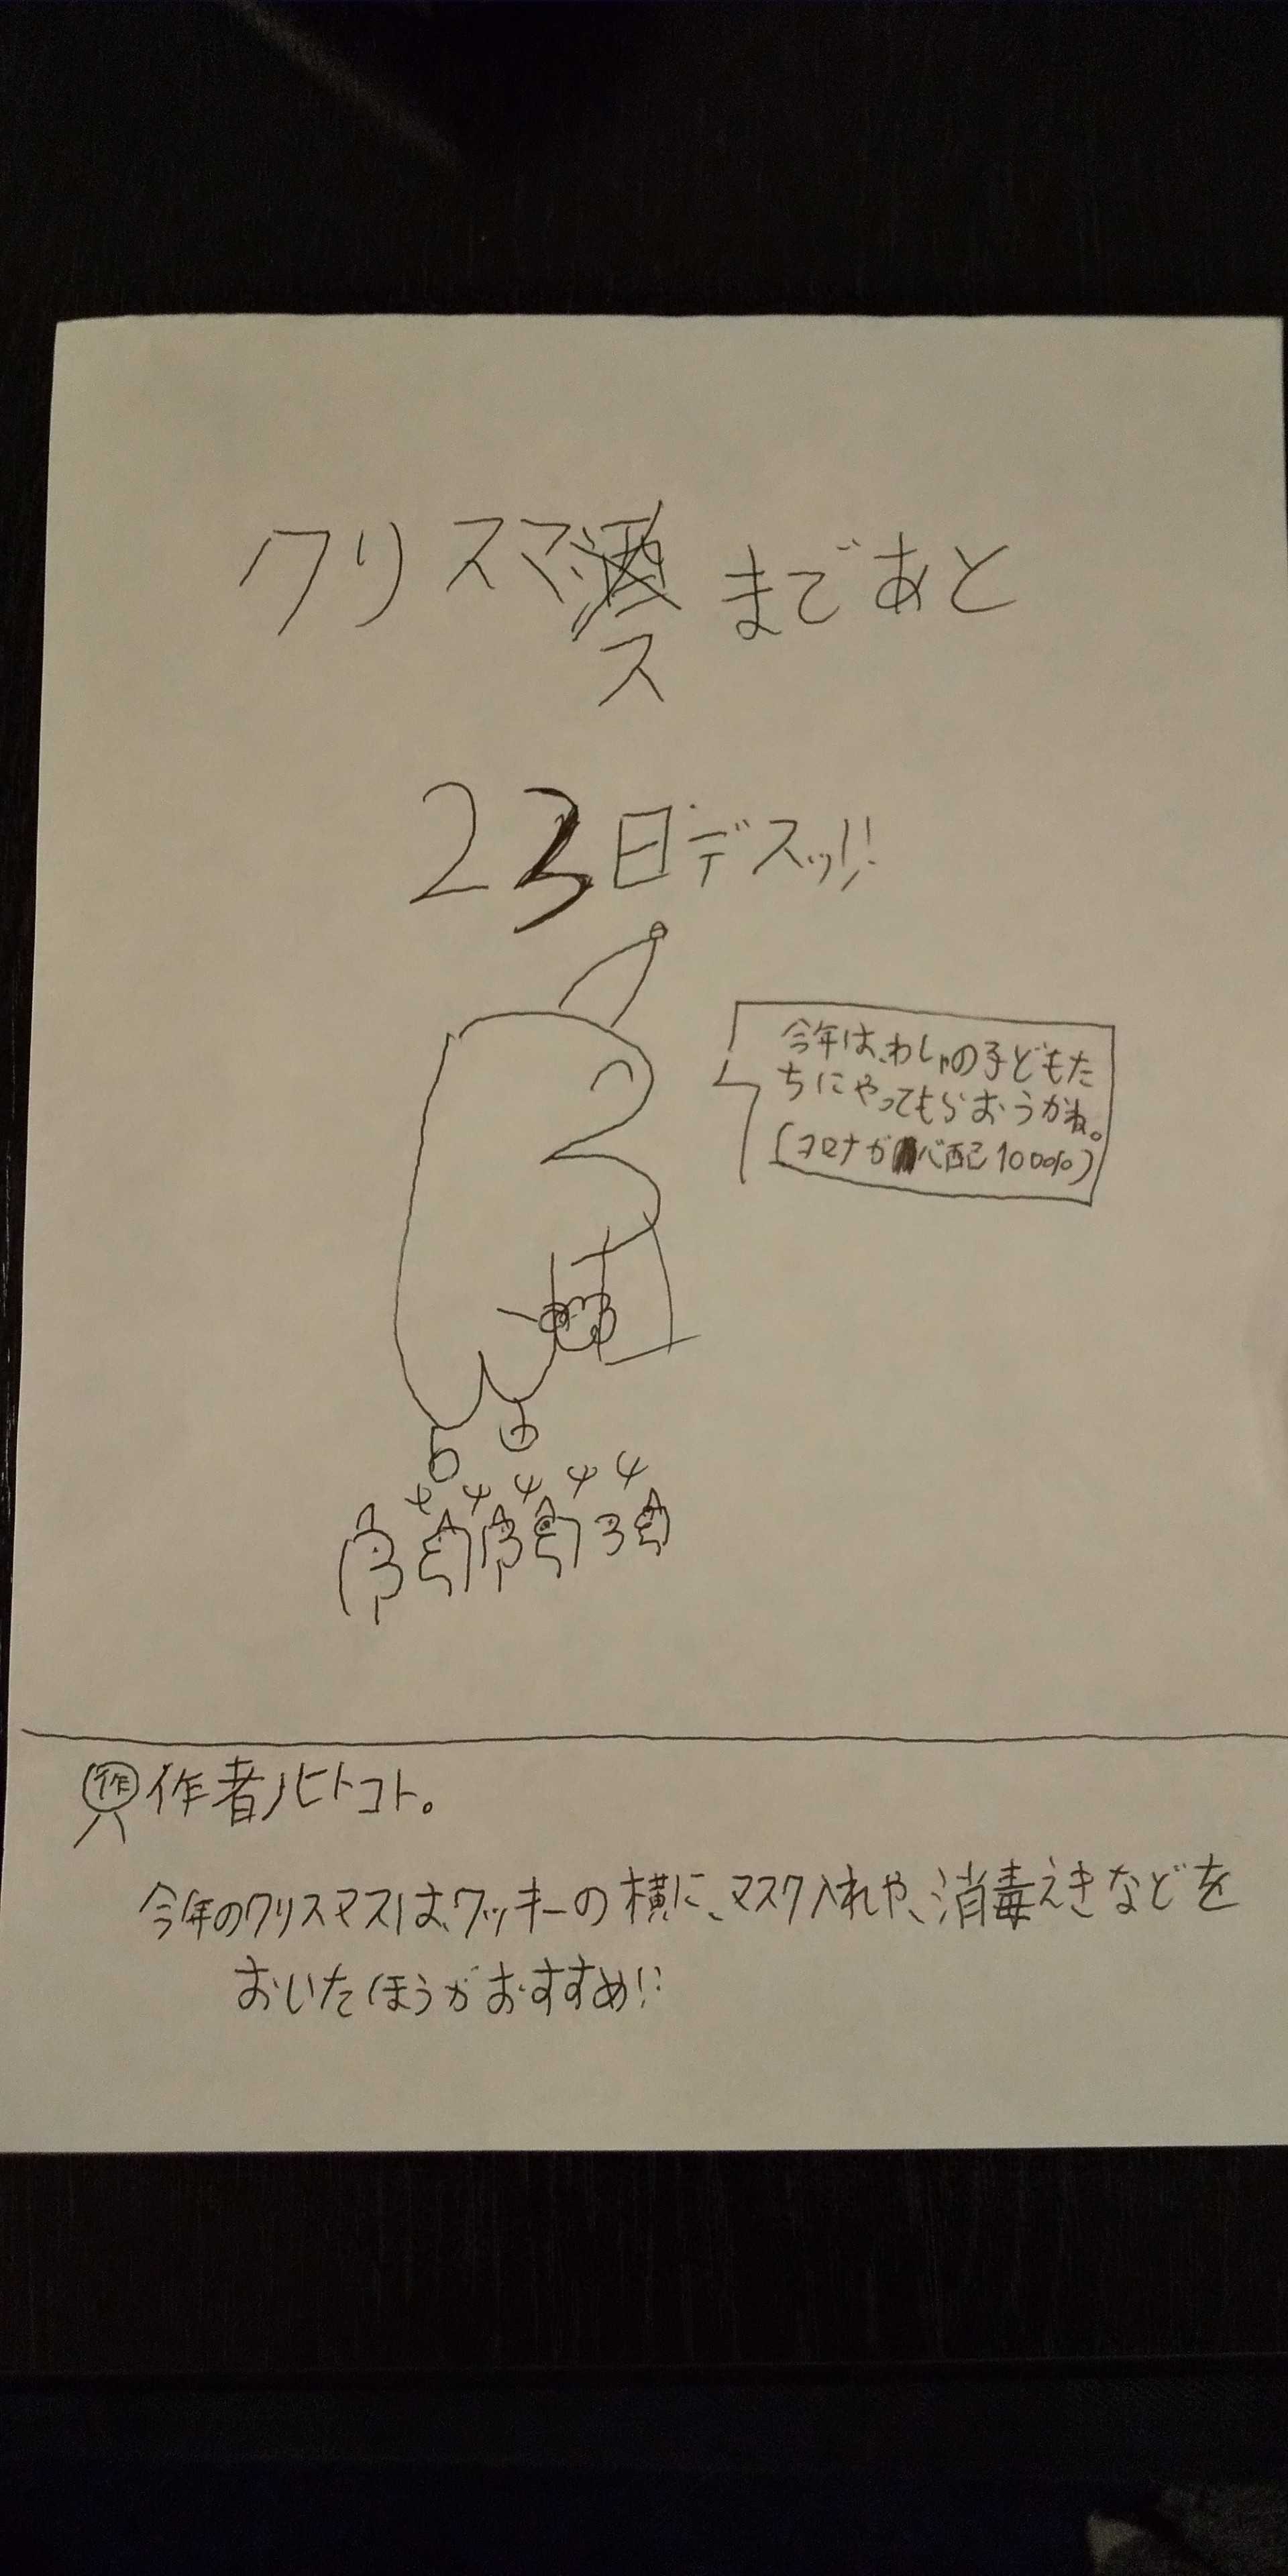 クリスマスまであと
23日デスッ!!
今年は、わしゃの子どもた
ちにやってもらおうかね。
(コロナが心配1000%)
作 作者ノヒトコト。
今年のクリスマスは、クッキーの横に、マスク入れや、消毒えきなどを
おいたほうがおすすめ!!